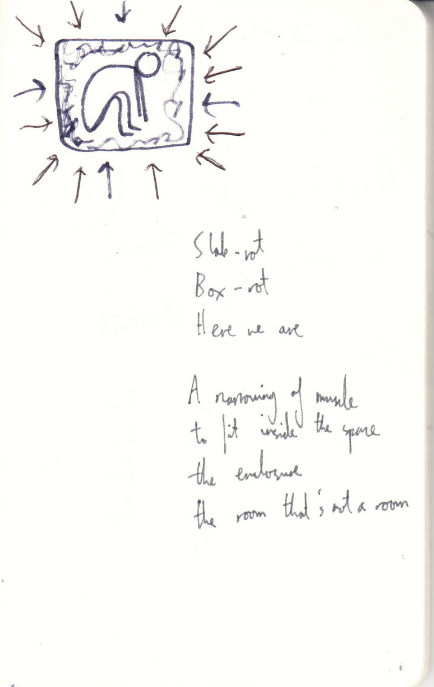 Slab-rot
Box-rot
Here we are
A narrowing of muscle
to fit inside the space
the enclosure
the room that's not a room